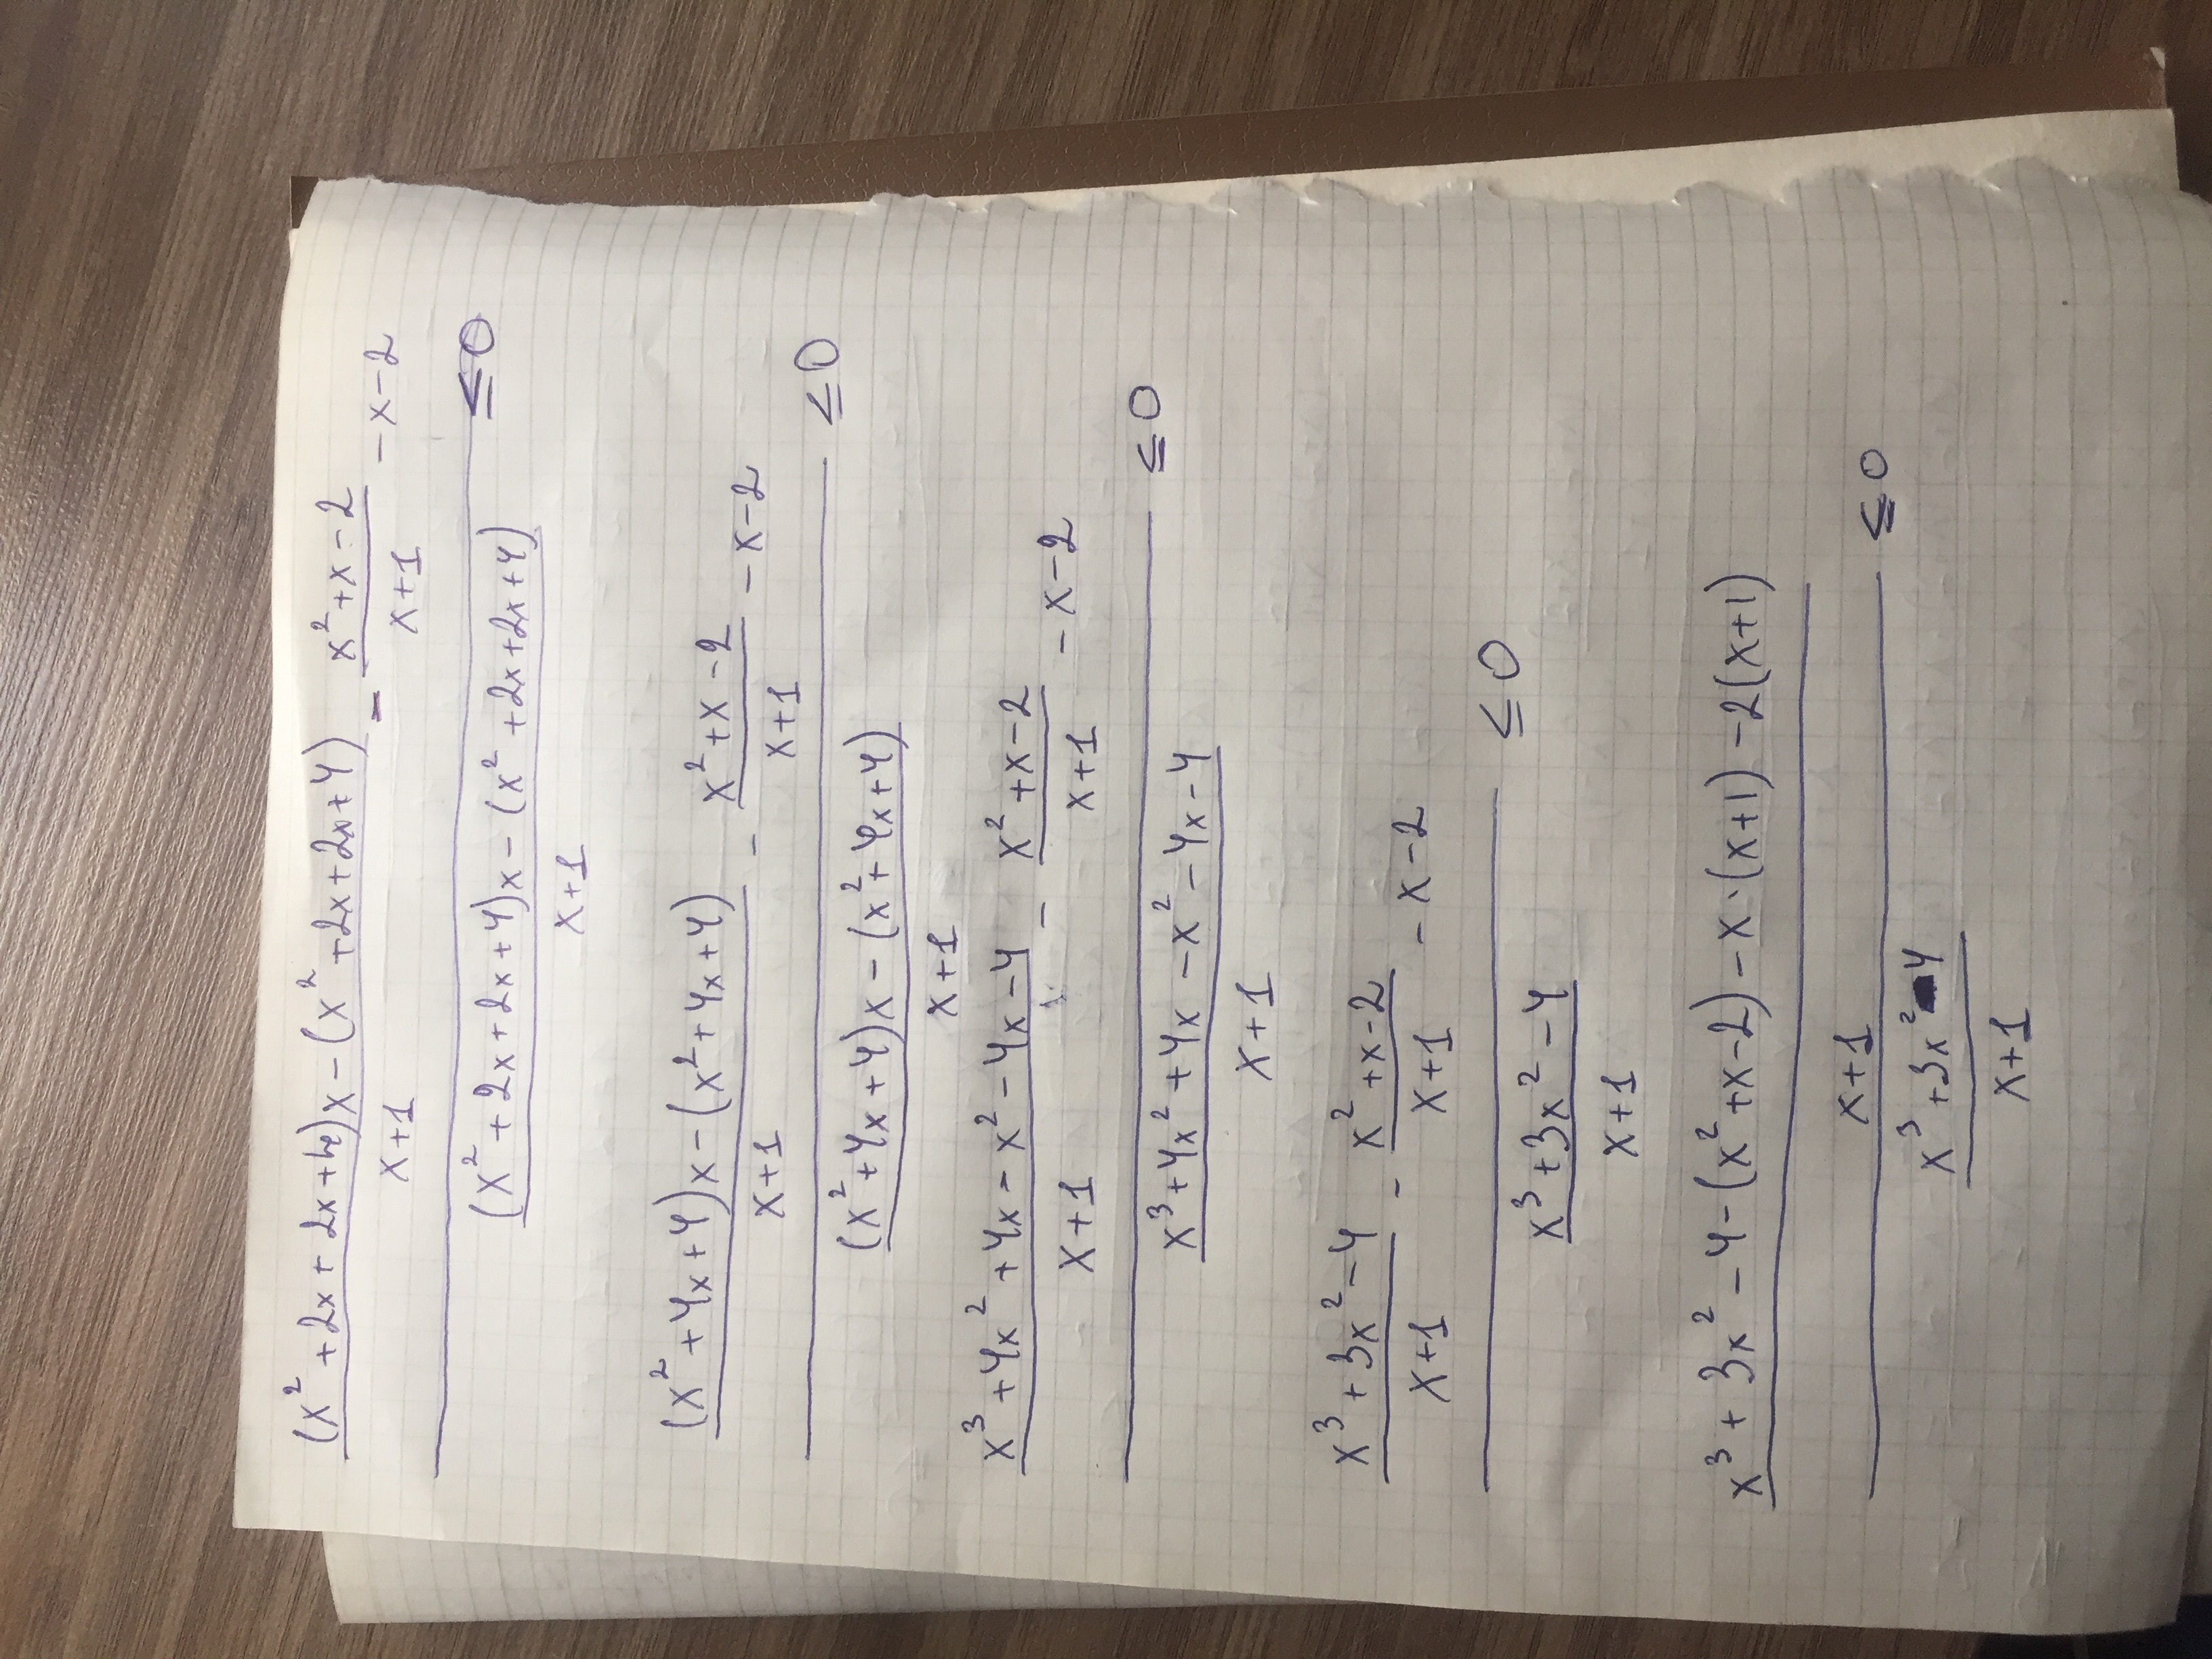 (x² + 2x + 2x + 4)x - (x² + 2x + 2x + 4) - x² + x - 2 - x - 2
x+1 x+1
≤0
(x² + 2x + 2x + 4)x - (x² + 2x + 2x + 4)
x+1
(x² + 4x + 4)x - (x² + 4x + 4) - x² + x - 2 - x - 2
x+1 x+1
≤0
(x² + 4x + 4)x - (x² + 4x + 4)
x+1
x³ + 4x² + 4x - x² - 4x - 4 - x² + x - 2 - x - 2
x+1 x+1
≤0
x³ + 4x² + 4x - x² - 4x - 4
x+1
x³ + 3x² - 4 - x² + x - 2 - x - 2
x+1 x+1
≤0
x³ + 3x² - 4
x+1
x³ + 3x² - 4 - (x² + x - 2) - x·(x+1) - 2(x+1)
x+1
≤0
x³ + 3x² - 4
x+1